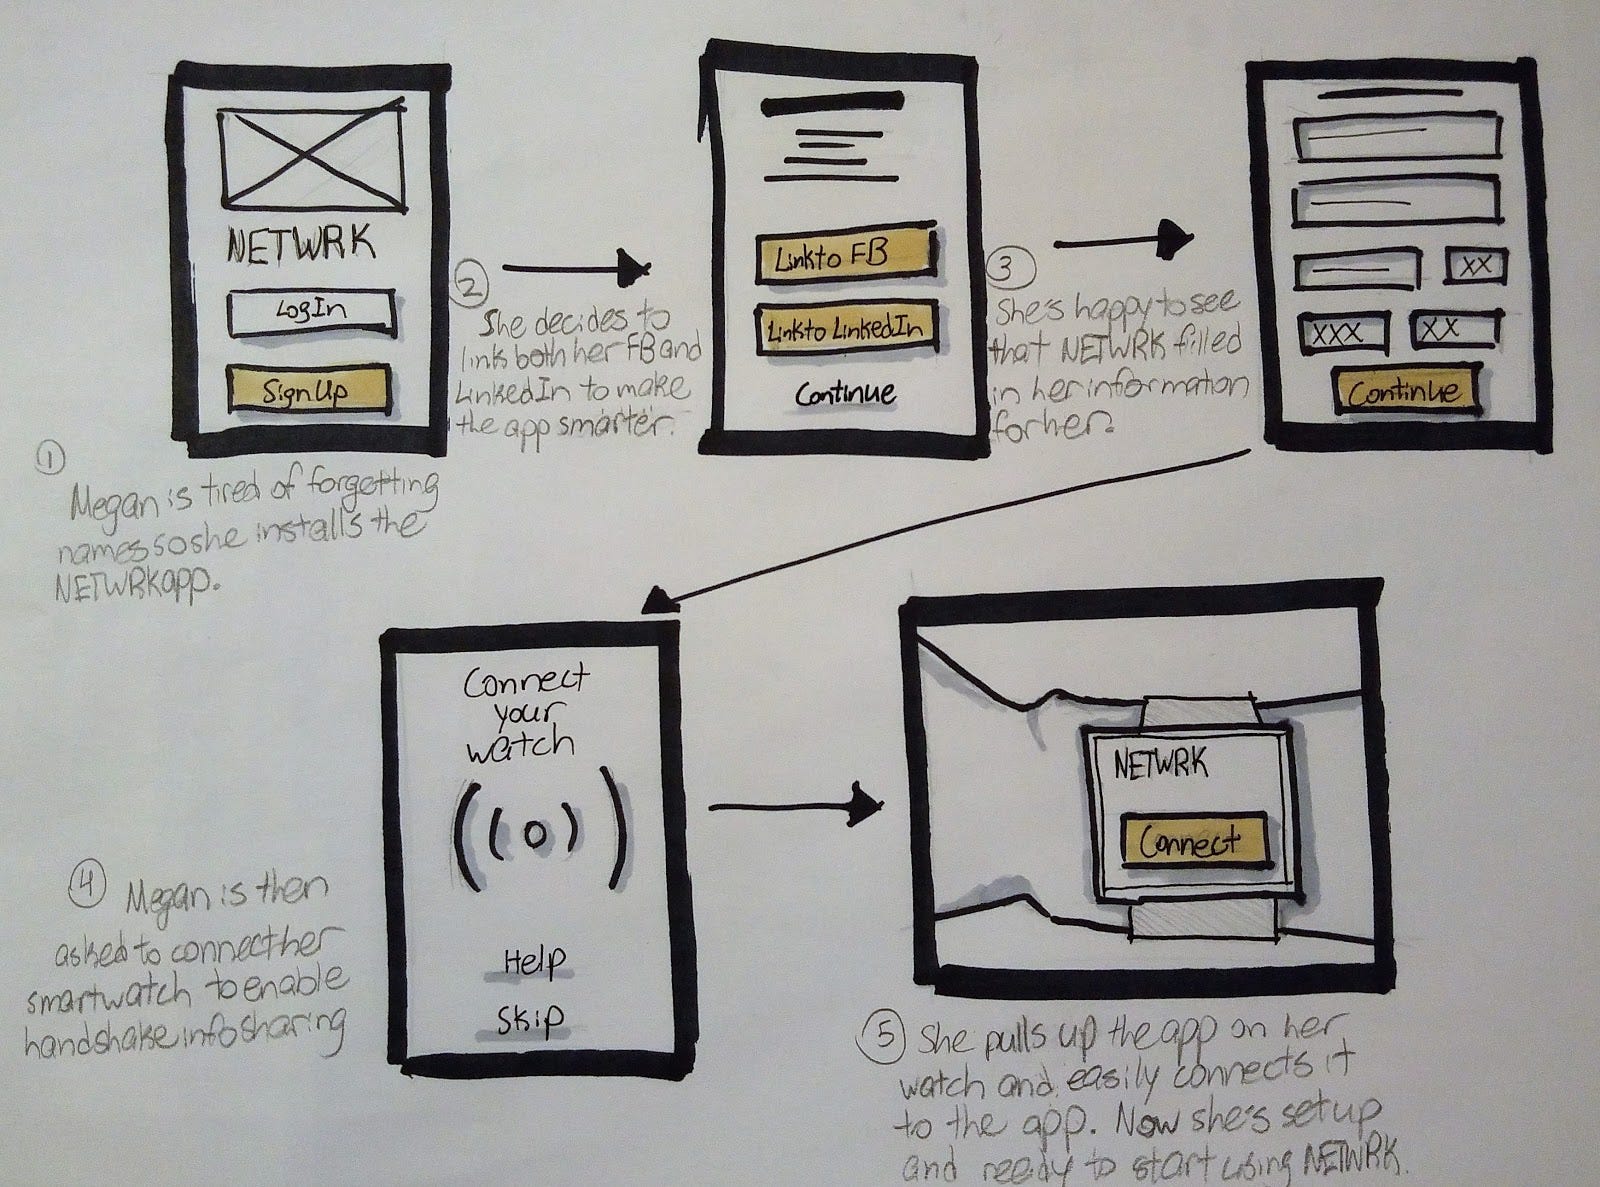 NETWRK
LogIn
SignUp
1
Megan is tired of forgetting
names so she installs the
NETWRK app.
2
She decides to
link both her FB and
LinkedIn to make
the app smarter.
Link to FB
Link to LinkedIn
Continue
3
She's happy to see
that NETWRK filled
in her information
for her.
XX
XXX
XX
Continue
4
Megan is then
asked to connect her
smartwatch to enable
handshake info sharing
Connect
your
watch
Help
Skip
NETWRK
Connect
5
She pulls up the app on her
watch and easily connects it
to the app. Now she's set up
and ready to start using NETWRK.